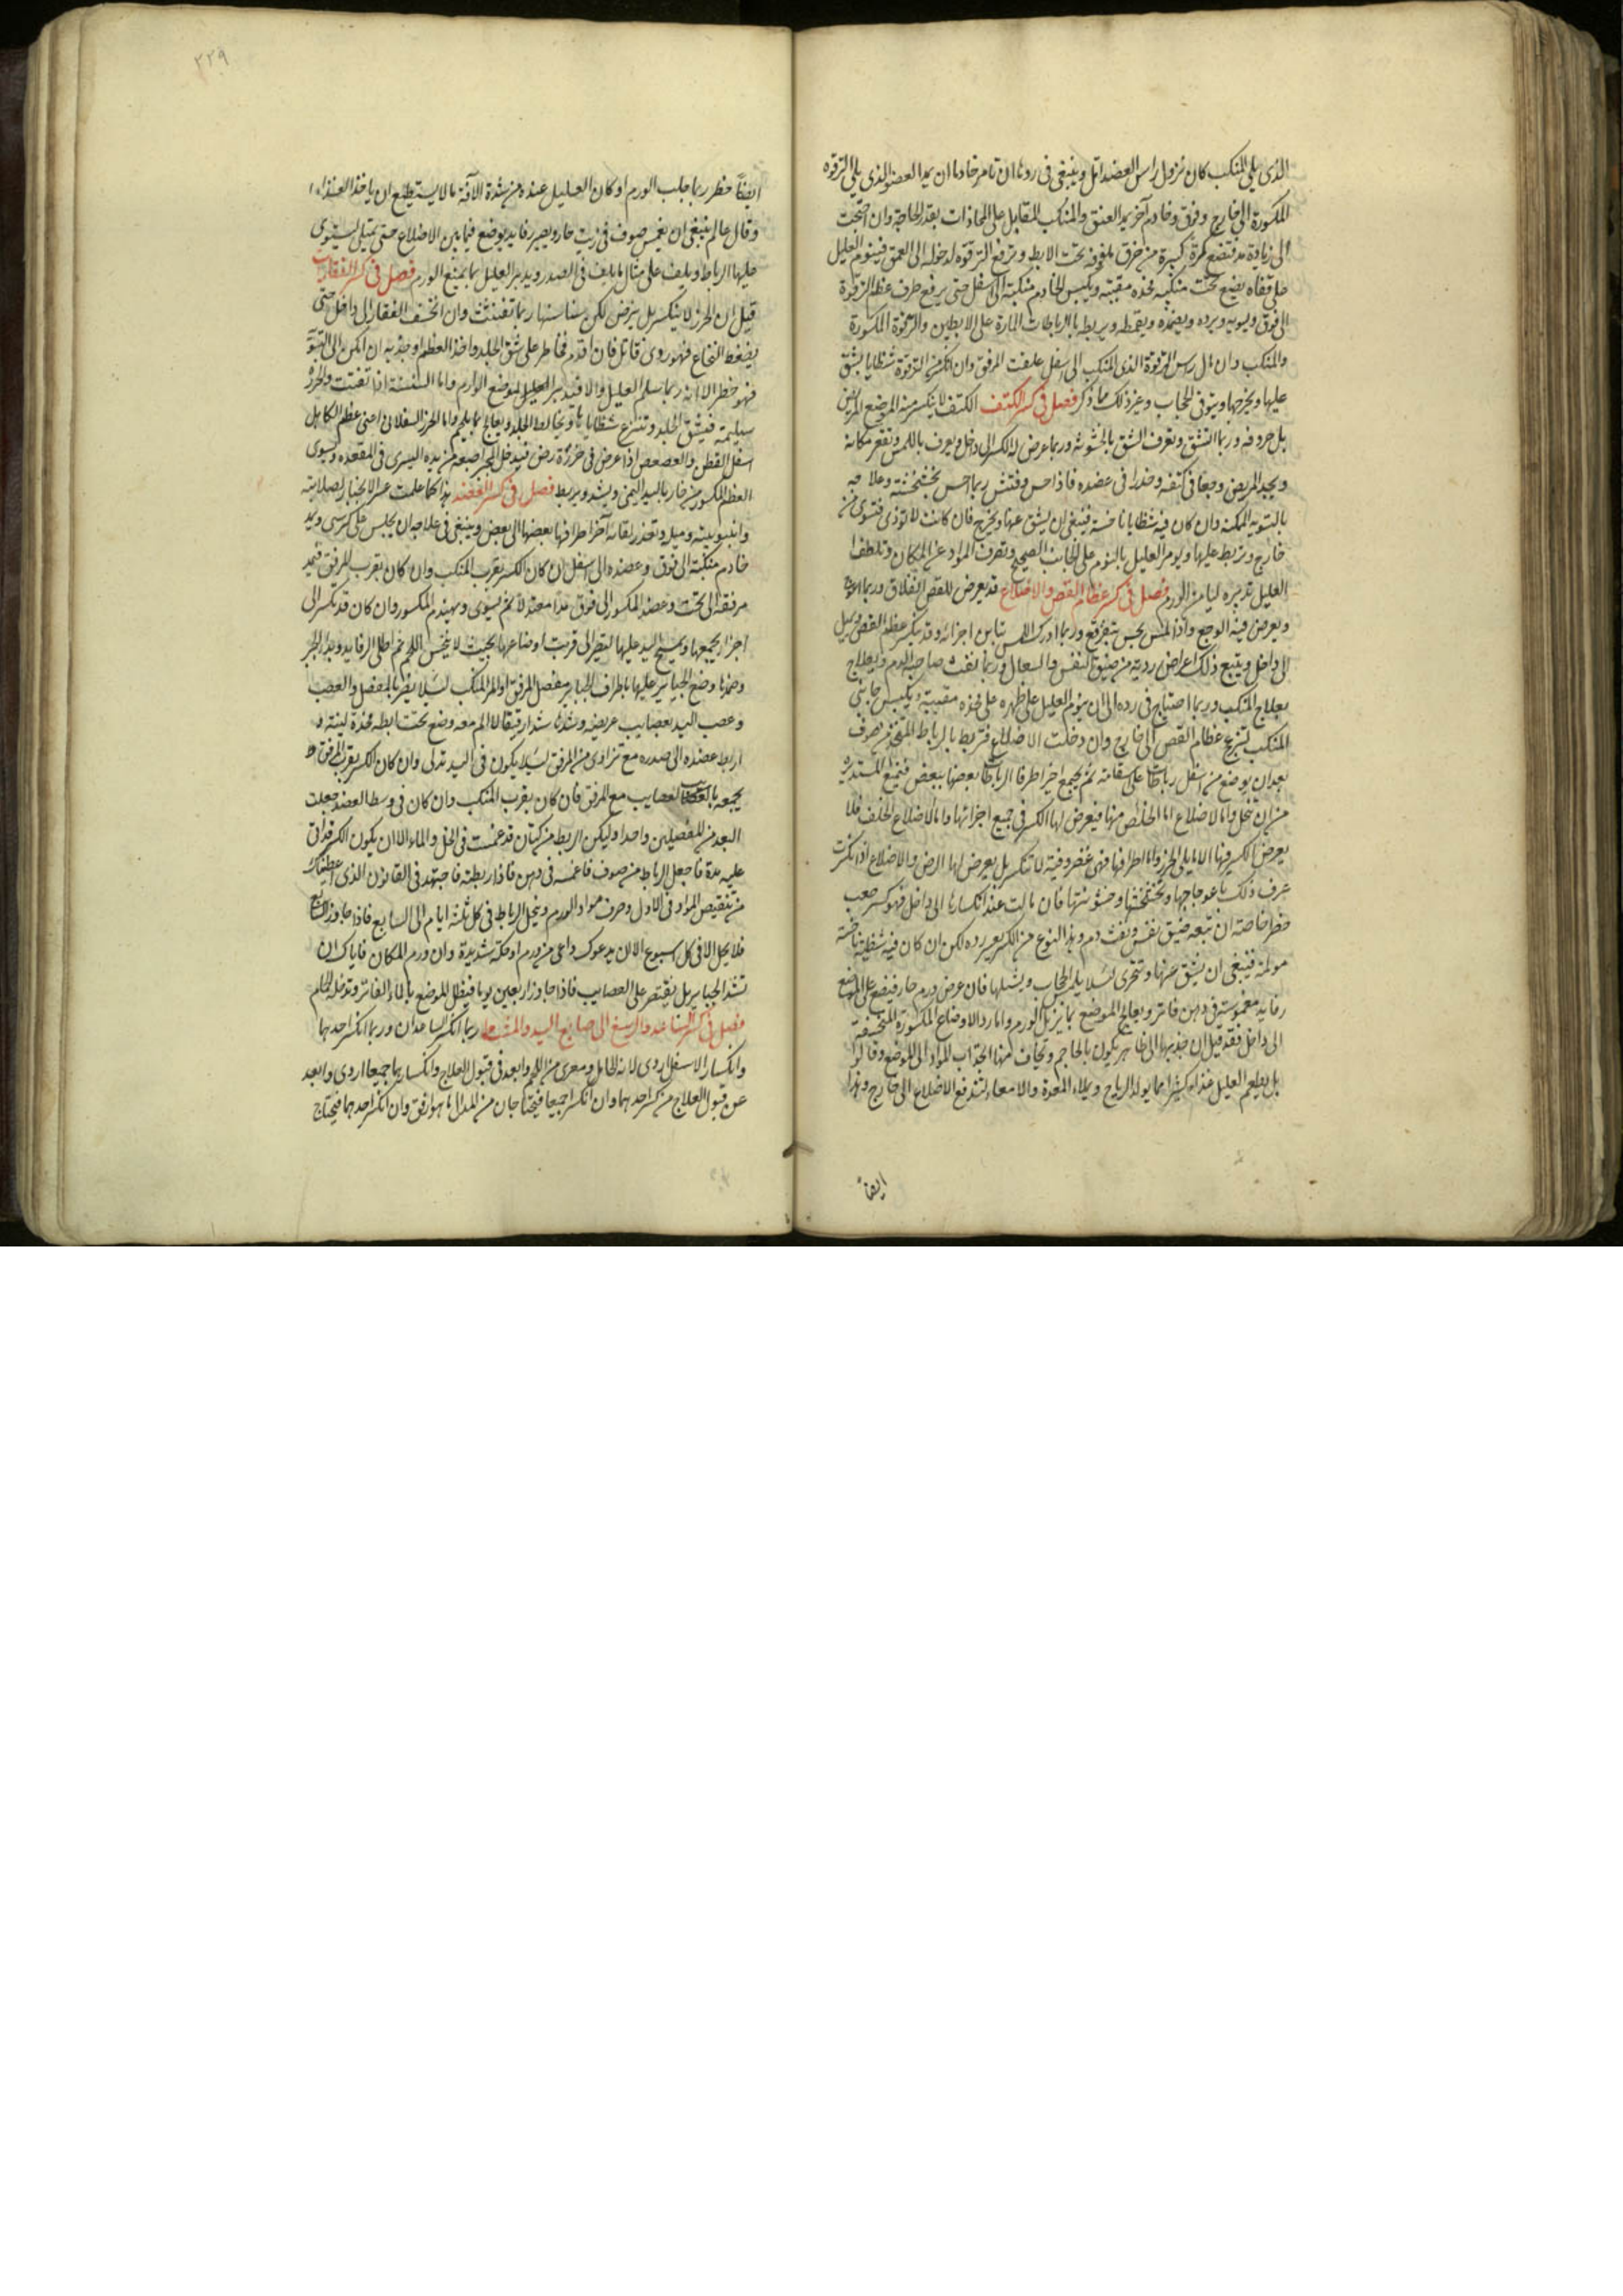 الذى يلى المنكب كان نزول راس العضد اقل وينبغى فى ردها ان تامر خادما ان يمد العضو الذى يلى الترقوه
المكسورة الى خارج وفوق وخادم آخر يمد العنق والمنكب المقابل على المحاذات بقدر الحاجة وان احتجت
الى زيادة مد فتضع كرة كبيرة من خرق ملفوفه تحت الابط وترفع الترقوه لدخولها الى العمق فينوم العليل
على قفاه يضع تحت منكبه مخده مقببه ويكبس الخادم منكبه الى اسفل حتى يرفع طرف عظم الترقوة
الى فوق ويسويه ويرده ويضمده ويقمطه ويربطه بالرباطات المارة على الابطين والترقوة المكسورة
والمنكب وان مال راس الترقوة الذى المنكب الى اسفل علقت المرفق وان انكسر من الترقوة شظايا يشق
عليها ويخرجها ويتوقى الحجاب وغير ذلك مما ذكر فصل فى كسر الكتف الكتف لا ينكسر منه الموضع العريض
بل حروفه وربما انشق ويعرف الشق بالخشونه وربما عرض له الكسر الى داخل ويعرف باللمس وتقعر مكانه
ويجد المريض وجعا فى كتفه وخدرا فى عضده فاذا حس وفتش ربما احس بخشخشته وعلاجه
بالتسويه الممكنه وان كان فيه شظايا ناخسة فينبغى ان يشق عنها ويخرج فان كانت لا توذى فتسوى من
خارج وتربط عليها ويومر العليل بالنوم على الجانب الصحيح وتصرف المواد عن المكان وتلطف
العليل تدبيره ليامن الورم فصل فى كسر عظام القص والاضلاع قد يعرض للقص انفلاق وربما
ويعرض فيه الوجع واذا لمس يحس بتفرقع وربما ادرك اللمس تباين اجزائه وقد ينكسر عظم القص ويميل
الى داخل ويتبع ذلك اعراض رديه من ضيق النفس والسعال وربما نفث صاحبه الدم ويعالج
بعلاج المنكب وربما احتاج فى رده الى ان ينوم العليل على ظهره على مخده مقببه ويكبس جانبى
المنكب لتبرز عظام القص الى خارج وان دخلت الاضلاع فتربط بالرباط المتخذ من صوف
بعد ان يوضع من اسفل رباطات على استقامة ثم يجمع اخيرا طرفا الرباط بعضها ببعض فتمنع المستديره
من ان تنحل واما الاضلاع اما الخلص منها فيعرض لها الكسر فى جميع اجزائها واما الاضلاع الخلف فلا
يعرض الكسر فيها الا مما يلى الخرز واما اطرافها فهى غضروفية لا تنكسر بل يعرض لها الرض والاضلاع اذا انكسرت
عرف ذلك باعوجاجها وتخشخشها وخشونتها فان مالت عند انكسارها الى داخل فهو كسر صعب
خطر خاصة ان تبعه ضيق نفس ونفث دم وهذا النوع من الكسر يعسر رده لكن ان كان فيه شظية ناخسة
مولمة فينبغى ان يشق عنها وتتحرى لئلا يلم الحجاب وينشلها فان عرض ورم حار فيضع على الموضع
رفايد مغموسة فى دهن فاتر ويعالج الموضع بما يزيل الورم واما رد الاوضاع المكسورة المنخسفة
الى داخل فقد قيل ان جذبها الى ظاهر يكون بالمحاجم ويخاف منها انجذاب المواد الى الموضع وقالوا
بل يطعم العليل غذاء كثيرا مما يولد الرياح ويملاء المعدة والامعاء لتندفع الاضلاع الى خارج وهذا
ايضاً
٢٣٩
ايضاً خطر ربما جلب الورم او كان العليل عنده من شدة الآفة ما لا يستطيع ان ياخذ الغذاء
وقال عالم ينبغى ان يغمس صوف فى زيت حار ويصير رفايد يوضع فيما بين الاضلاع حتى يمتلى ليستوى
عليها الرباط ويلف على مثال ما يلف فى الصدر ويدبر العليل بما يمنع الورم فصل فى كسر الفقارات
قيل ان الخرز لا ينكسر بل يرض لكن سناسنها ربما تفتتت وان انخسف الفقار الى داخل حتى
يضغط النخاع فهو روى قاتل فان اقدم مخاطر على شق الجلد واخذ العظم او جذبه ان امكن الى التسوية
فهو خطر الا انه ربما سلم العليل والا فتدبير العليل الموضع الوارم واما السنسنة اذا تفتتت والخرز
سليمة فيشق الجلد وتنزع شظاياها ويخاط الجلد ويعالج بما يلحم واما الخرز السفلانى اعنى عظم الكاهل
اسفل القطن والعصعص اذا عرض فى خرزة رض فيدخل المجبر اصبعه من يده اليسرى فى المقعده ويسوى
العظم المكسور من خارج باليد اليمنى ويشد ويربط فصل فى كسر العضد هذا كما علمت عسر الانجبار لصلابته
وانبوبيته وميله وتعذر لقاء اطرافها بعضها الى بعض وينبغى فى علاجه ان يجلس على كرسى ويمد
خادم منكبه الى فوق وعضده الى اسفل ان كان الكسر بقرب المنكب وان كان بقرب المرفق فيمد
مرفقه الى تحت وعضده المكسور الى فوق مدا معتدلا ثم يسوى ويهندم المكسور وان كان قد تكسر الى
اجزاء يجمعها ويمسح اليد عليها لتصير الى قرب اوضاعها بحيث لا ينخس اللحم ثم اطلى الرفايد وبدا الجبر
وضمدها وضع الجباير عليها باطراف الجباير مفصل المرفق او المر المنكب لئلا يضر بالمفصل والعصب
وعصب اليد بعصايب عريضه وشدها شدا رقيقا لا الم معه وضع تحت ابطه مخدة لينة و
اربط عضده الى صدره مع تزاوى من المرفق لئلا يكون فى اليد تدلى وان كان الكسر بقرب المرفق
يجمعه بالعصايب مع المرفق فان كان بقرب المنكب وان كان فى وسط العضد جعلت
البعد من المفصلين واحدا وليكن الربط من كتان قد غمست فى الخل والماء الا ان يكون الكسر قد اتى
عليه مدة فاجعل الرباط من صوف فاغمسه فى دهن فاذا ربطته فاجتهد فى القانون الذى اعطيناك
من تنقيص المواد فى الاول وصرف مواد الورم ويحل الرباط فى كل ثلثة ايام الى السابع فاذا جاوز السابع
فلا يحل الا فى كل اسبوع الا ان يدعوك داعى من ورم او حكة شديدة وان ورم المكان فاياك ان
تشد الجباير بل يقتصر على العصايب فاذا جاوز اربعين يوما فينطل الموضع بالماء الفاتر وتدخله الحمام
فصل فى كسر الساعد والرسغ الى اصابع اليد والمشط ربما انكسر الساعدان وربما انكسر احدهما
وانكسار الاسفل اردى لانه الحامل ومعرى من اللحم وابعد فى قبول العلاج وانكسارهما جميعا اردى وابعد
عن قبول العلاج من كسر احدهما وان انكسرا جميعا فيحتاجان من المد الى ما هو ارفق وان انكسر احدهما فيحتاج